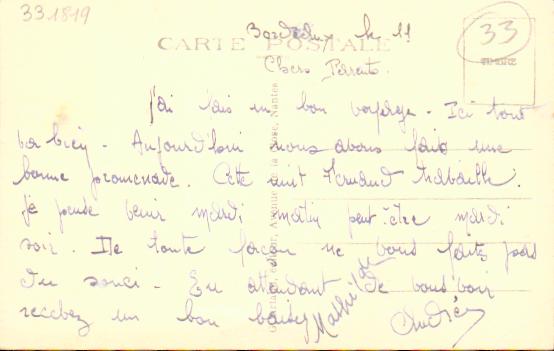 331819
33
Bordeaux le 11
CARTE POSTALE
TIMBRE
Chers Parents.
J'ai fais un bon voyage. Ici tout
va bien. Aujourd'hui nous avons fais une
bonne promenade. Cette nuit Fernand travaille.
je pense venir mardi matin peut-être mardi
soir. De toute façon ne vous faites pas
du souci. En attendant de vous voir
recevez un bon baiser
Mathilde
éditeur, Avenue de la Close, Nantes